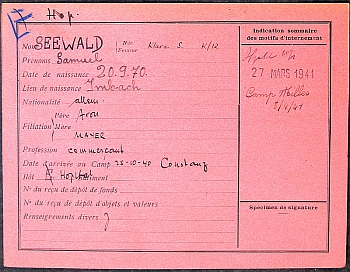 Hop.
Nom SEEWALD Née Femme Klara S. K/12
Prénoms Samuel
Date de naissance 20.9.70.
Lieu de naissance Imbach
Nationalité allem.
Filiation Père Aron
Mère MAYER
Profession commercant
Date d'arrivée au Camp 25-10-40 Constanz
Ilôt Hopital Bâtiment
N° du reçu de dépôt de fonds
N° du reçu de dépôt d'objets et valeurs
Renseignements divers
Indication sommaire
des motifs d'internement
27 MARS 1941
Camp Milles
Spécimen de signature